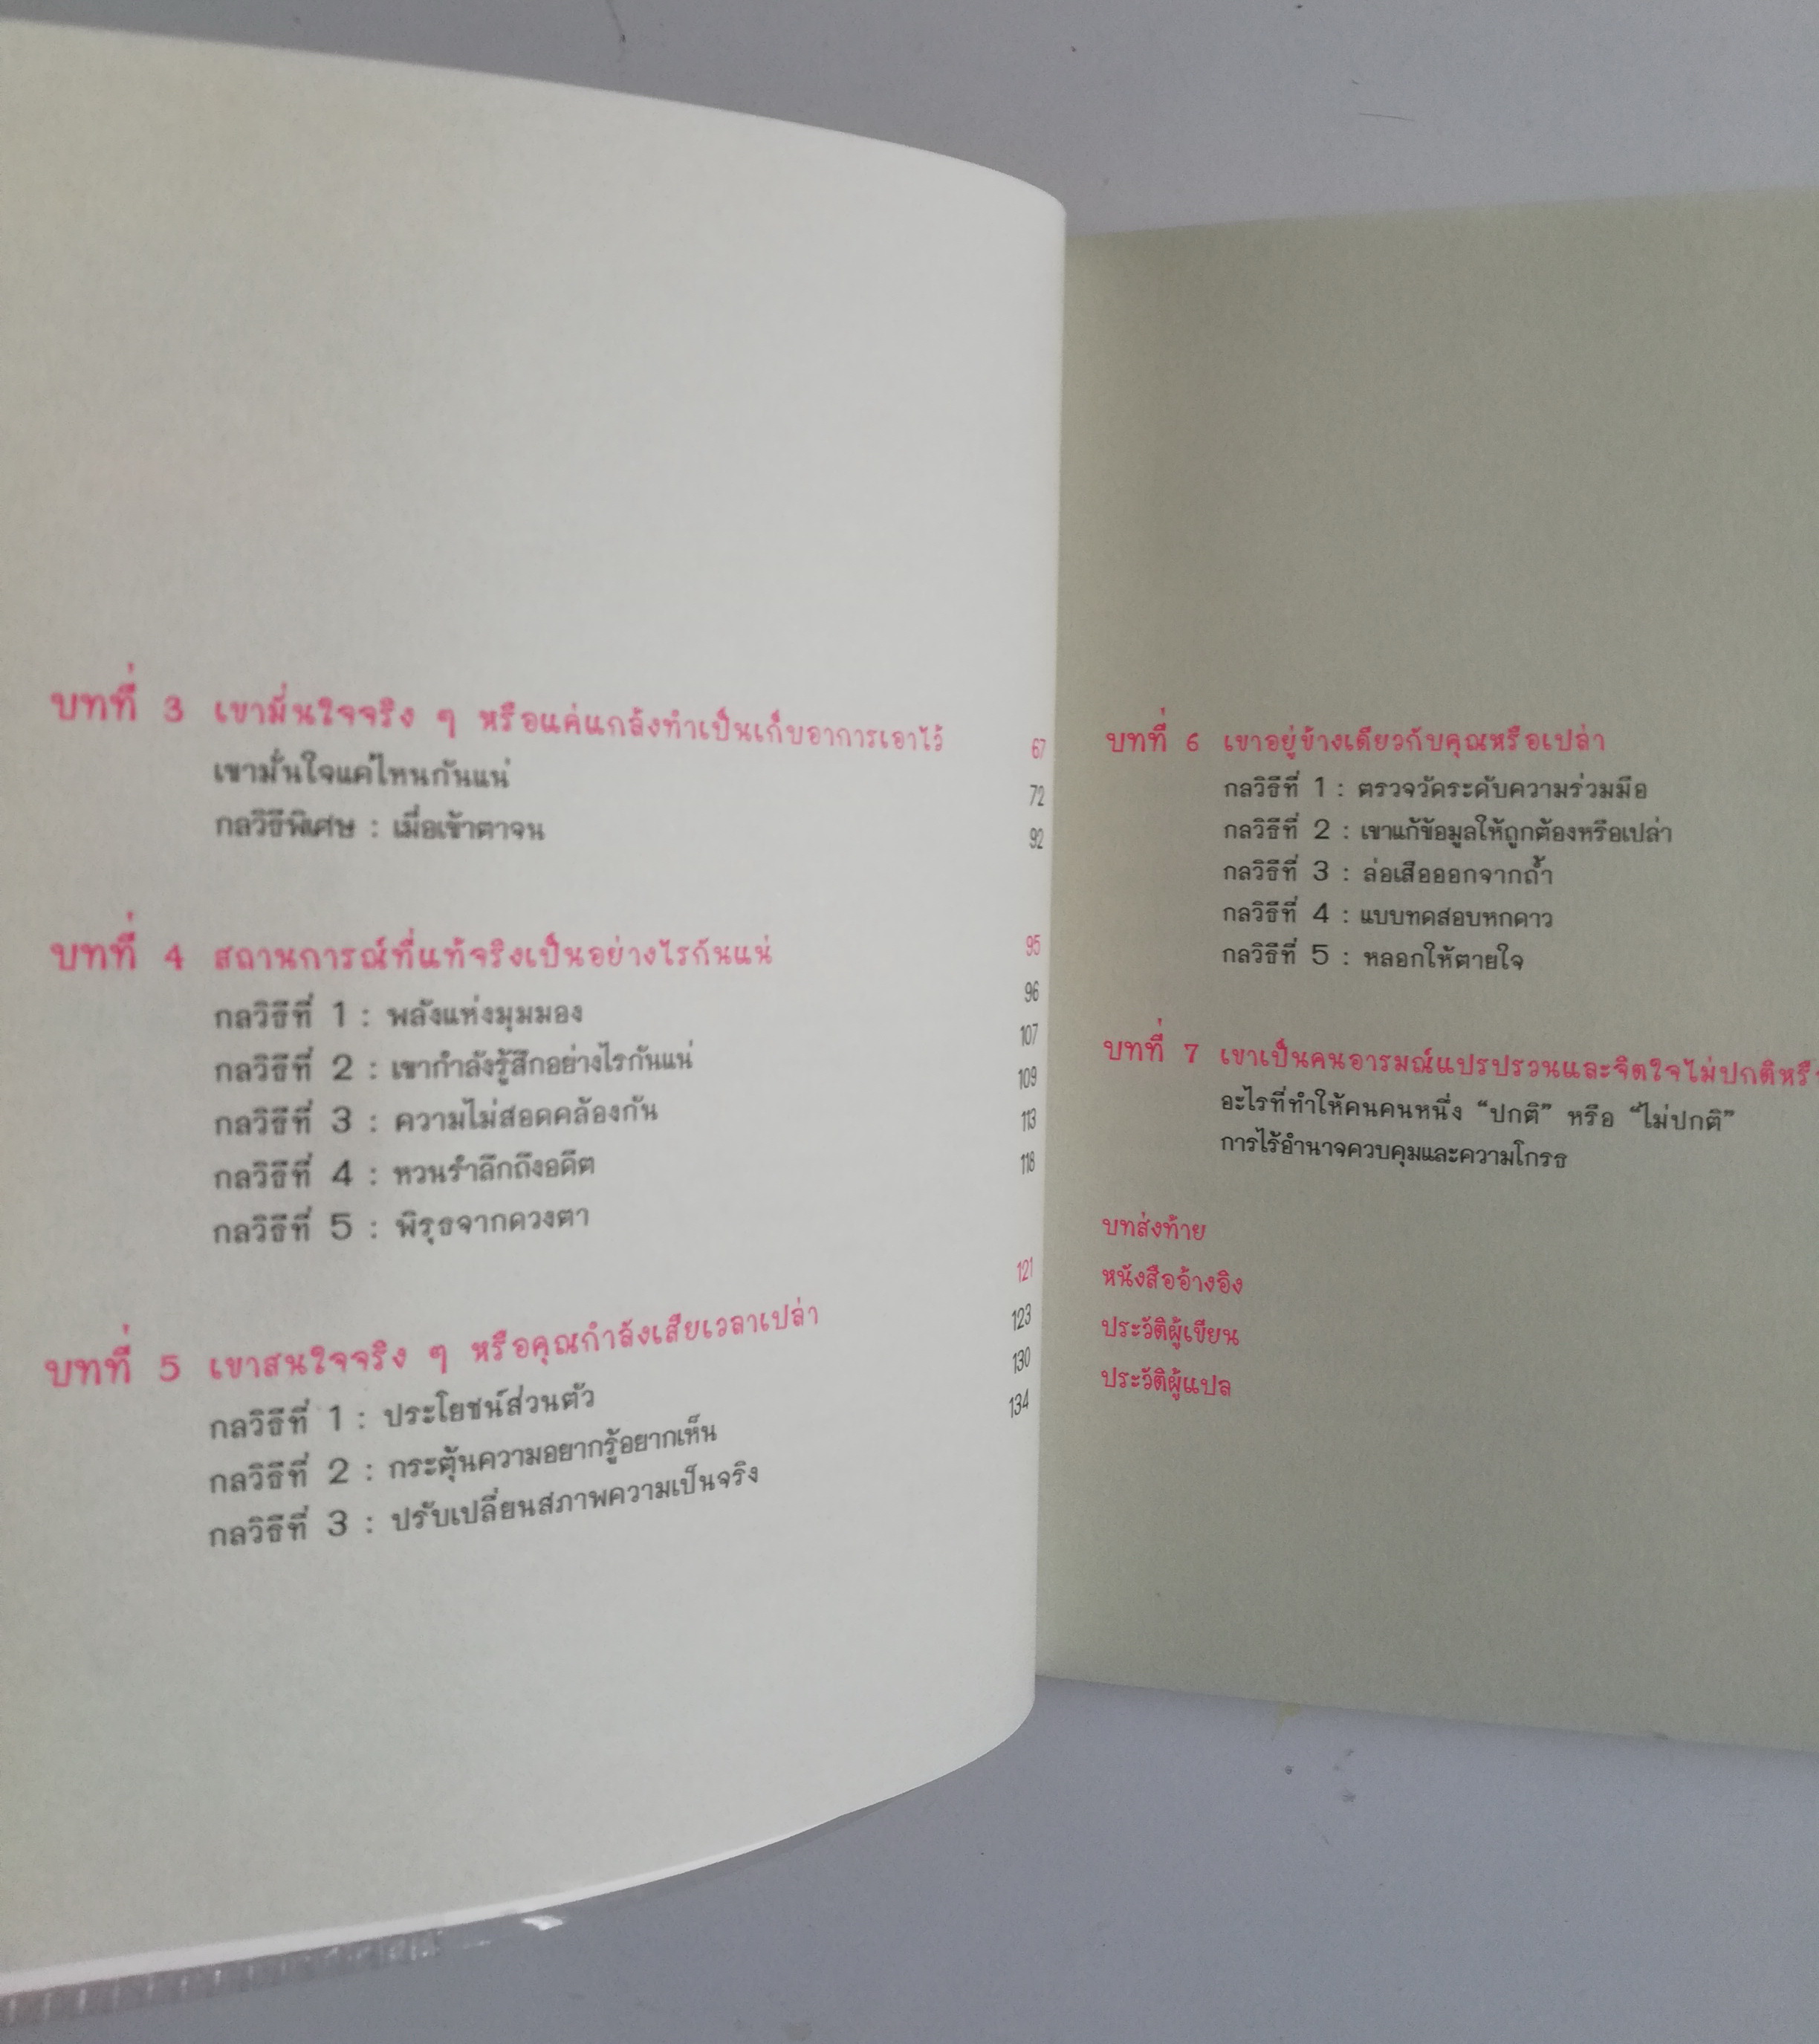 บทที่ 3 เขามั่นใจจริง ๆ หรือแค่แกล้งทำเป็นเก็บอาการเอาไว้ 67
เขามั่นใจแค่ไหนกันแน่ 72
กลวิธีพิเศษ : เมื่อเข้าตาจน 92
บทที่ 4 สถานการณ์ที่แท้จริงเป็นอย่างไรกันแน่ 95
กลวิธีที่ 1 : พลังแห่งมุมมอง 96
กลวิธีที่ 2 : เขากำลังรู้สึกอย่างไรกันแน่ 107
กลวิธีที่ 3 : ความไม่สอดคล้องกัน 109
กลวิธีที่ 4 : หวนรำลึกถึงอดีต 113
กลวิธีที่ 5 : พิรุธจากดวงตา 118
บทที่ 5 เขาสนใจจริง ๆ หรือคุณกำลังเสียเวลาเปล่า 121
กลวิธีที่ 1 : ประโยชน์ส่วนตัว 123
กลวิธีที่ 2 : กระตุ้นความอยากรู้อยากเห็น 130
กลวิธีที่ 3 : ปรับเปลี่ยนสภาพความเป็นจริง 134
บทที่ 6 เขาอยู่ข้างเดียวกับคุณหรือเปล่า
กลวิธีที่ 1 : ตรวจวัดระดับความร่วมมือ
กลวิธีที่ 2 : เขาแก้ข้อมูลให้ถูกต้องหรือเปล่า
กลวิธีที่ 3 : ล่อเสือออกจากถ้ำ
กลวิธีที่ 4 : แบบทดสอบหกดาว
กลวิธีที่ 5 : หลอกให้ตายใจ
บทที่ 7 เขาเป็นคนอารมณ์แปรปรวนและจิตใจไม่ปกติ
อะไรที่ทำให้คนคนหนึ่ง “ปกติ” หรือ “ไม่ปกติ”
การไร้อำนาจควบคุมและความโกรธ
บทส่งท้าย
หนังสืออ้างอิง
ประวัติผู้เขียน
ประวัติผู้แปล